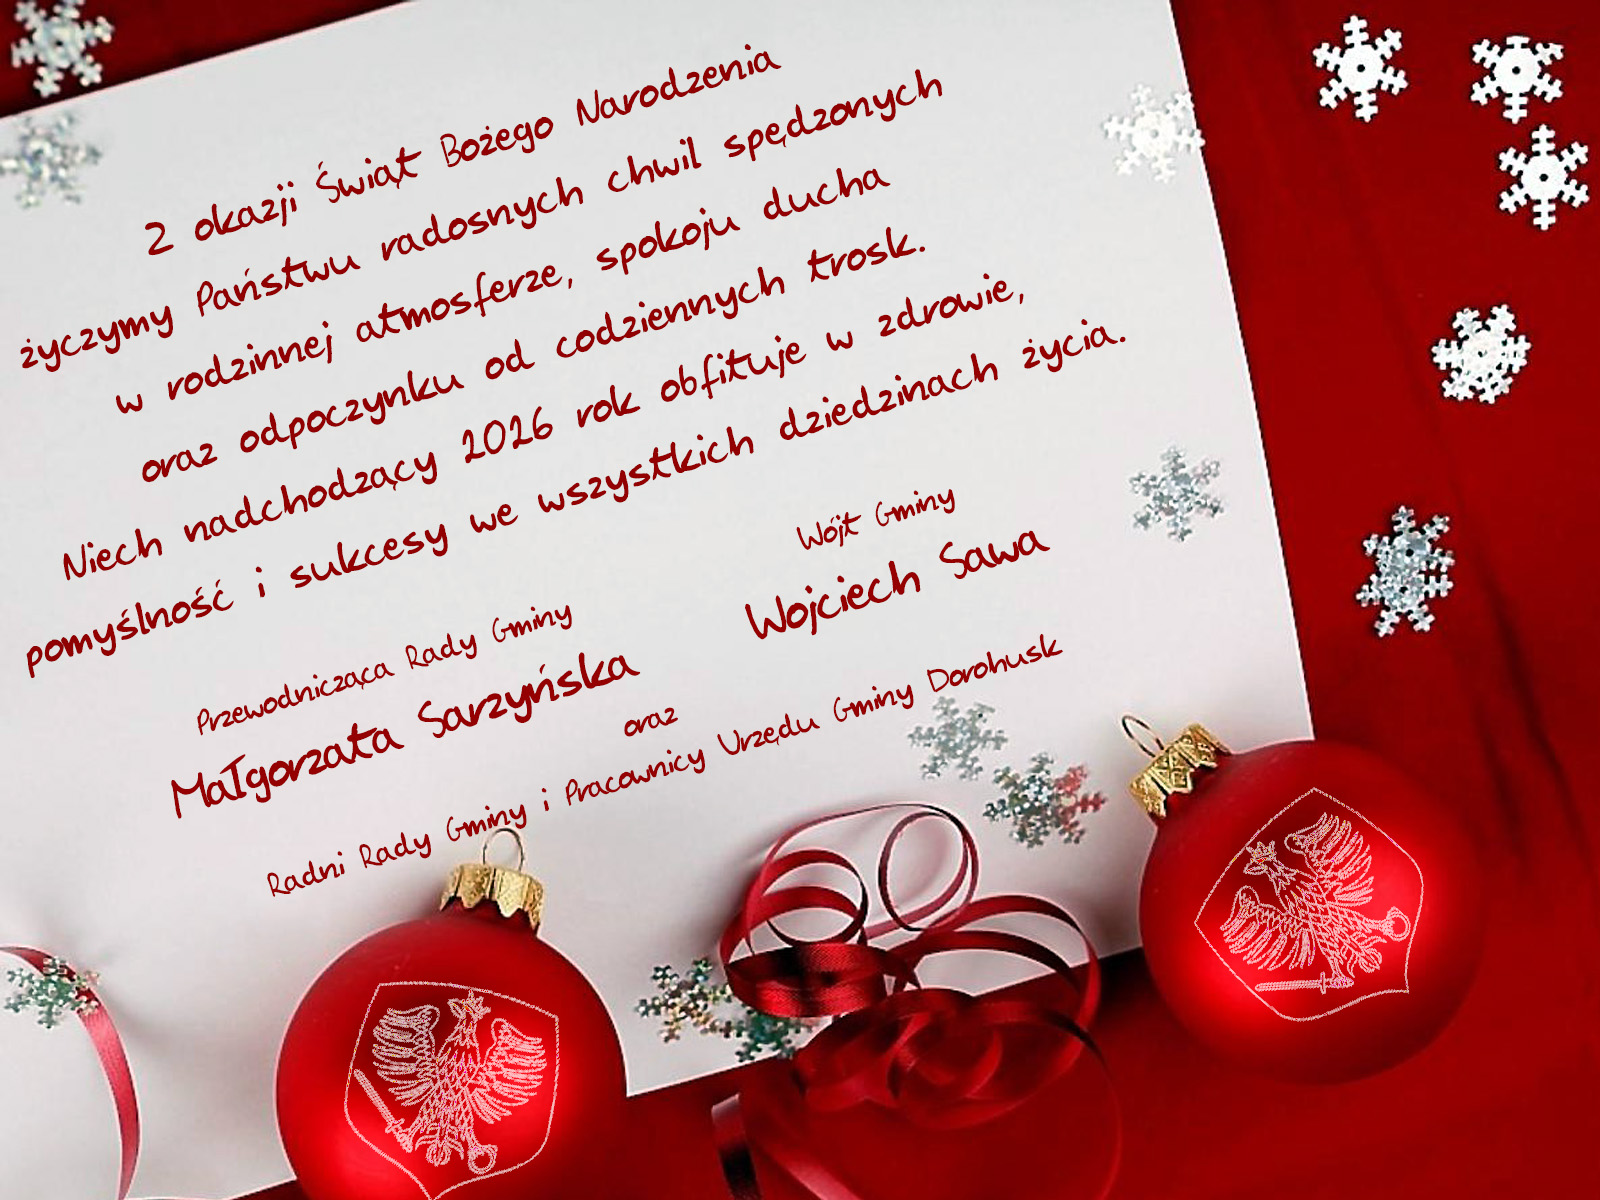 Z okazji Świąt Bożego Narodzenia
życzymy Państwu radosnych chwil spędzonych
w rodzinnej atmosferze, spokoju ducha
oraz odpoczynku od codziennych trosk.
Niech nadchodzący 2026 rok obfituje w zdrowie,
pomyślność i sukcesy we wszystkich dziedzinach życia.
Przewodnicząca Rady Gminy
Małgorzata Sarzyńska
Wójt Gminy
Wojciech Sawa
oraz
Radni Rady Gminy i Pracownicy Urzędu Gminy Dorohusk